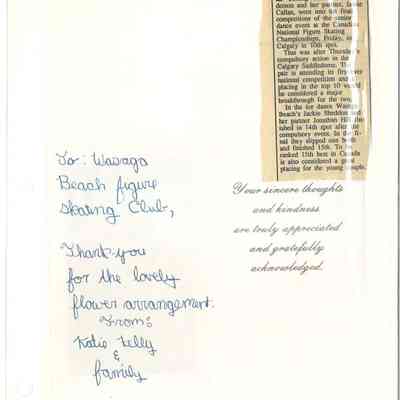 derson and her partner, Jamie
Callan, went into the final
competitions of the senior
dance event at the Canadian
National Figure Skating
Championships, Friday, in
Calgary in 10th spot.
That was after Thursday's
compulsory action in the
Calgary Saddledome. The
pair is attending its first ever
national competition and a
placing in the top 10 would
be considered a major
breakthrough for the two.
In the ice dance Wasaga
Beach's Jackie Sheddon and
her partner Jonathan Hill
ished in 14th spot after the
compulsory event. In the fi-
nal they slipped one
and finished 15th. To be
ranked 15th best in Canada
is also considered a good
placing for the young couple.
To: Wasaga
Beach figure
skating Club,
Thank-you
for the lovely
flower arrangement.
From:
Katie Kelly
&
family
Your sincere thoughts
and kindness
are truly appreciated
and gratefully
acknowledged.